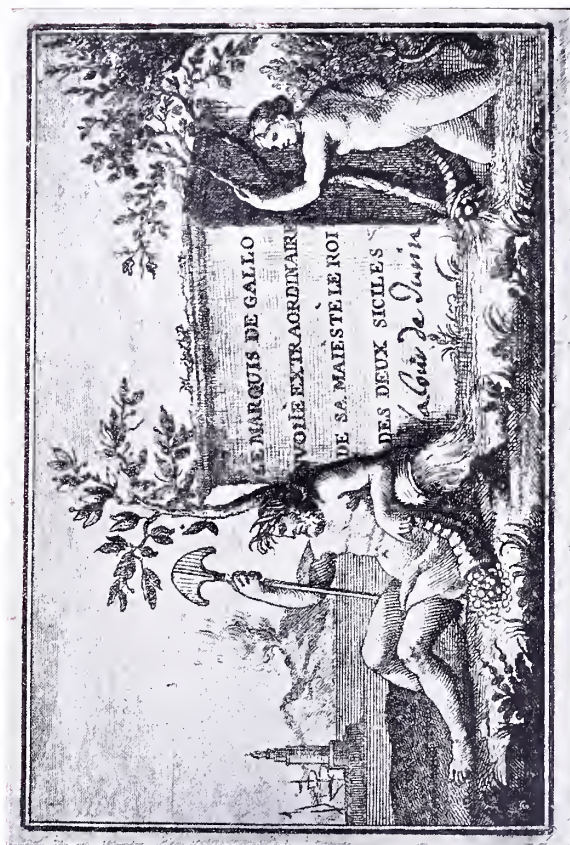 LE MARQUIS DE GALLO
VOIIE EXTRAORDINAIRE
DE SA MAIESTÈ LE ROI
DES DEUX SICILES
a la Cour de Turin